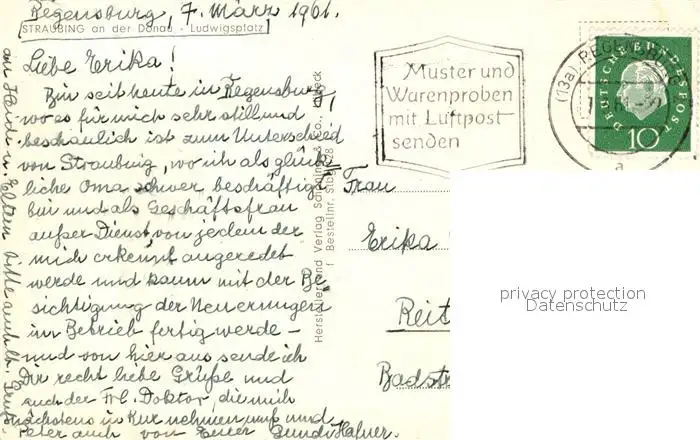 Regensburg, 7. März 1961.
STRAUBING an der Donau - Ludwigsplatz
Liebe Erika!
Bin seit heute in Regensburg,
wo es für mich sehr still und
beschaulich ist zum Unterschied
von Straubing, wo ich als glück-
liche Oma schwer beschäftigt
bin und als Geschäftsfrau
außer Dienst, von jedem der
mich erkennt, angeredet
werde und kaum mit der Be-
sichtigung der Neuerungen
im Betrieb fertig werde –
und von hier aus sende ich
Dir recht liebe Grüße und
auch der Frl. Doktor, die mich
nächstens in Kur nehmen muß und
Peter auch von Euer Gundi Hafner.
an Heidi u. Eltern bitte auch lb. Grüße
Hersteller und Verlag
Bestellnr.
Muster und
Warenproben
mit Luftpost
senden
(13a) REGENSBURG
a
DEUTSCHE BUNDESPOST
10
Frau
Erika
Reit
Badstr
privacy protection
Datenschutz